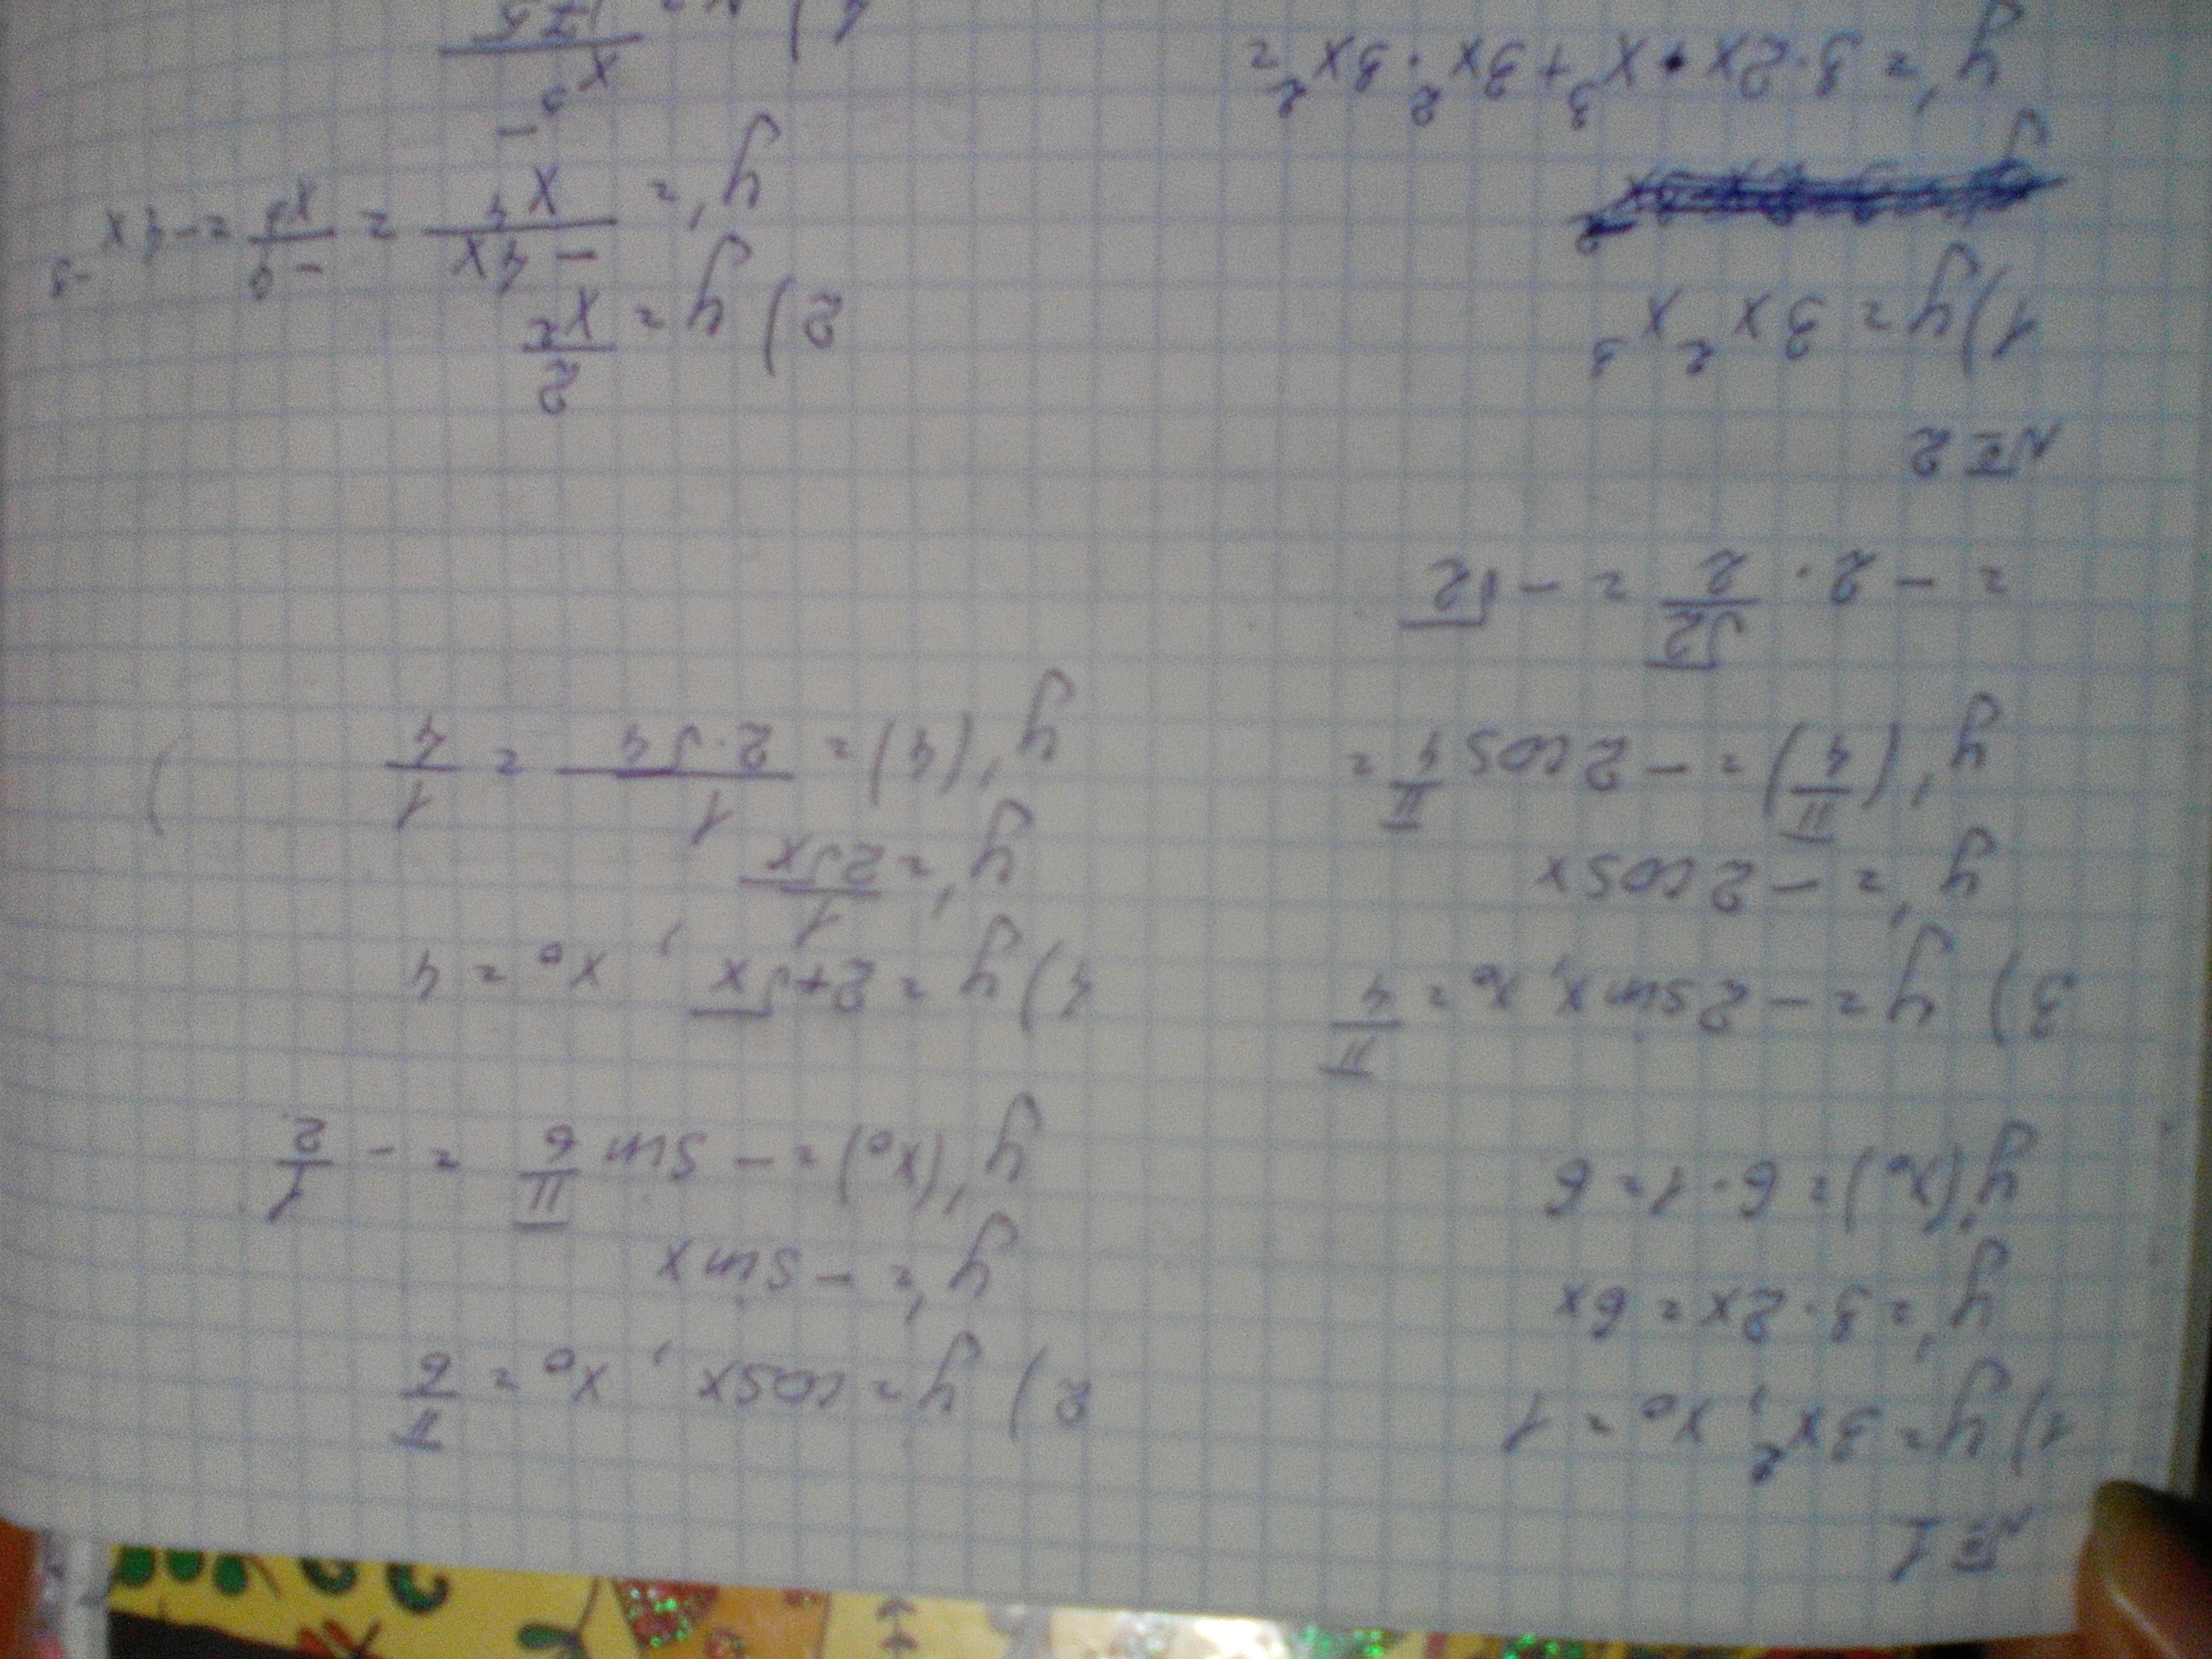 №1
1) y = 3x², x₀ = 1
y' = 3·2x = 6x
y'(x₀) = 6·1 = 6
2) y = cosx, x₀ = π/6
y' = - sinx
y'(x₀) = - sin π/6 = - 1/2
3) y = - 2sinx, x₀ = π/4
y' = - 2cosx
y'(π/4) = - 2cos π/4 =
= - 2 · √2/2 = - √2
4) y = 2+√x, x₀ = 4
y' = 1/2√x
y'(4) = 1/2·√4 = 1/4
№2
1) y = 3x²x³
y' = 3·2x·x³+3x²·3x²=
2) y = 2/x²
y' = - 4x/x⁴ = = -4x⁻³